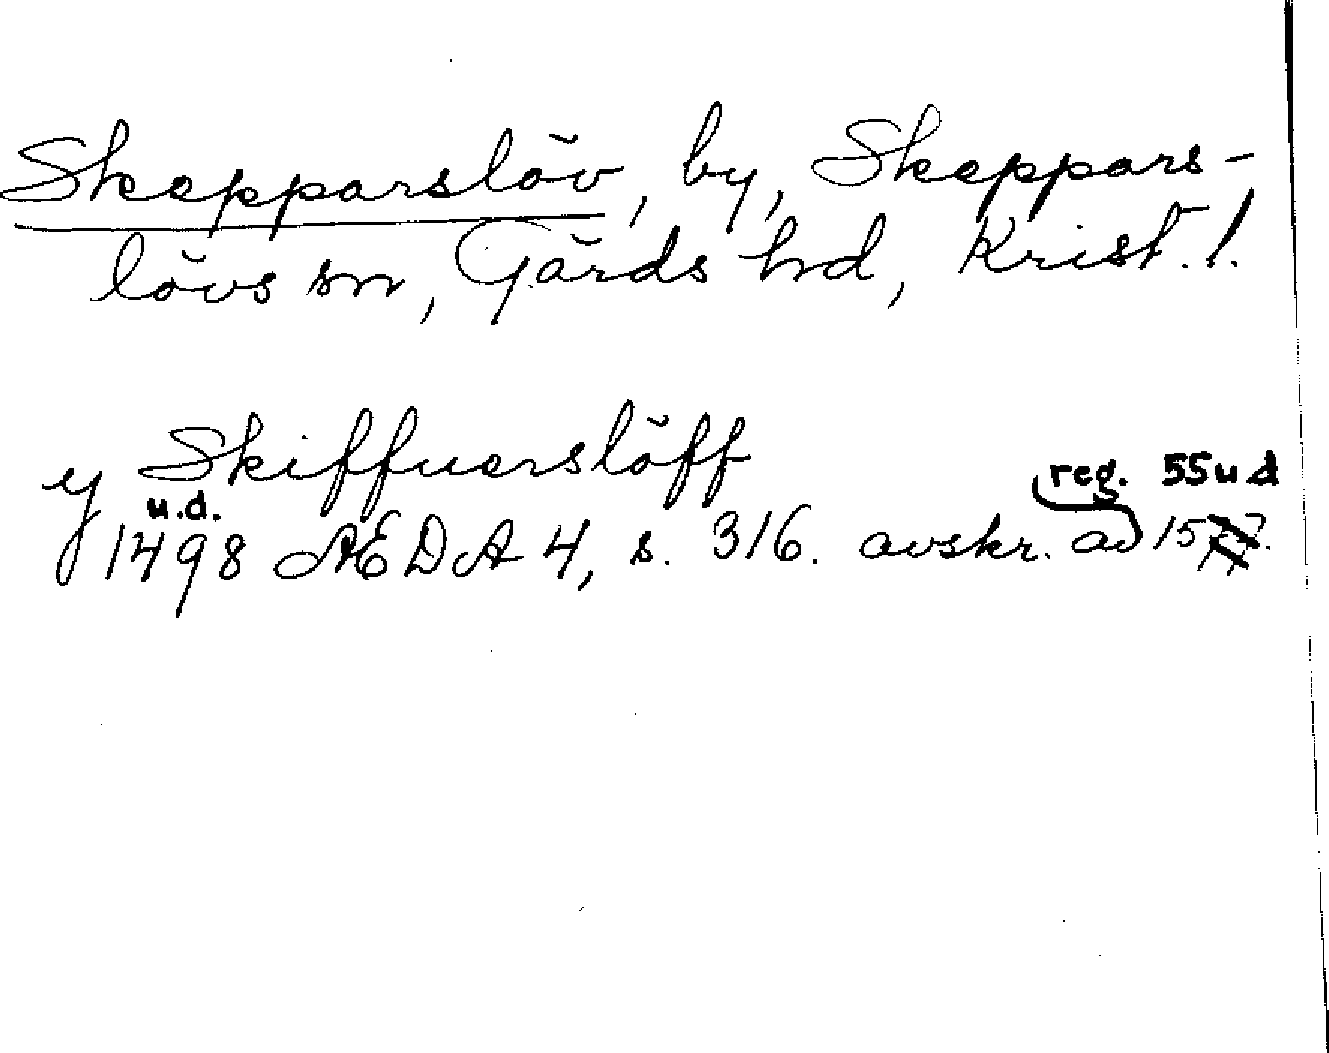 Skepparslöv, by, Skeppars-
lövs sn, Gärds hd, Krist. l.
y Skiffuerslöff
u.d. reg. 55 u.d
1498 ÆDA 4, s. 316. avskr. ad 15